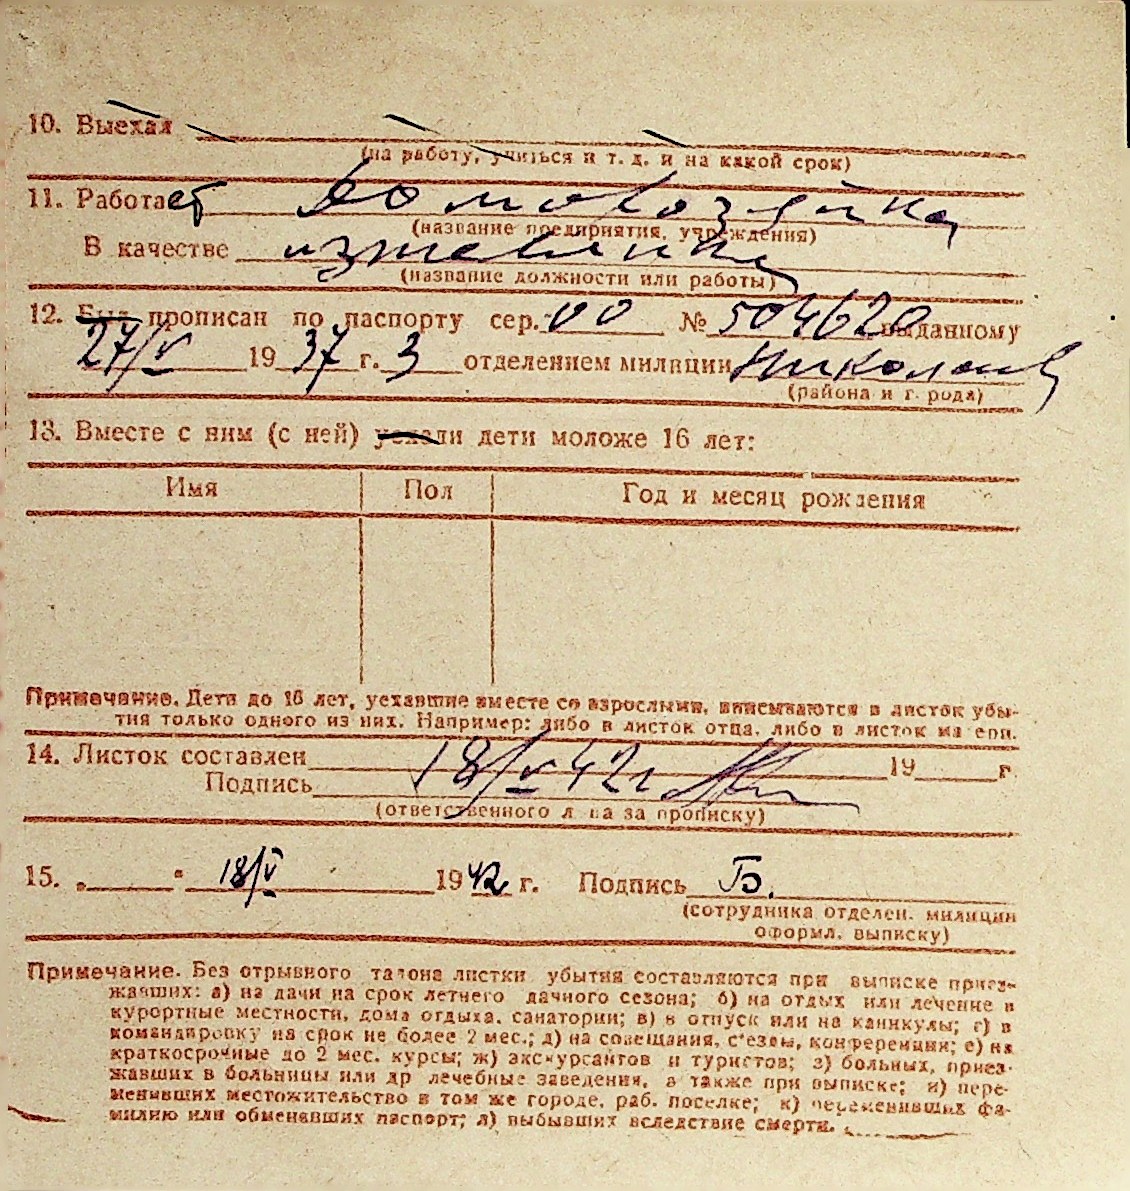 10. Выехал
(на работу, учиться и т. д. и на какой срок)
11. Работает домохозяйка
(название предприятия, учреждения)
В качестве иждивенка
(название должности или работы)
12. Был прописан по паспорту сер. 00 № 504620 выданному
27/V 1937 г. 3 отделением милиции Николаев
(района и города)
13. Вместе с ним (с ней) уехали дети моложе 16 лет:
Имя Пол Год и месяц рождения
Примечание. Дети до 16 лет, уехавшие вместе со взрослыми, вписываются в листок убы-
тия только одного из них. Например: либо в листок отца, либо в листок матери.
14. Листок составлен 18/V 42 г 19 г.
Подпись
(ответственного лица за прописку)
15. „ “ 18/V 1942 г. Подпись Б.
(сотрудника отделен. милиции
оформл. выписку)
Примечание. Без отрывного талона листки убытия составляются при выписке приез-
жавших: а) на дачи на срок летнего дачного сезона; б) на отдых или лечение в
курортные местности, дома отдыха, санатории; в) в отпуск или на каникулы; г) в
командировку на срок не более 2 мес.; д) на совещания, с'езды, конференции; е) на
краткосрочные до 2 мес. курсы; ж) экскурсантов и туристов; з) больных, приез-
жавших в больницы или др лечебные заведения, а также при выписке; и) пере-
менивших местожительство в том же городе, раб. поселке; к) переменивших фа-
милию или обменявших паспорт; л) выбывших вследствие смерти.